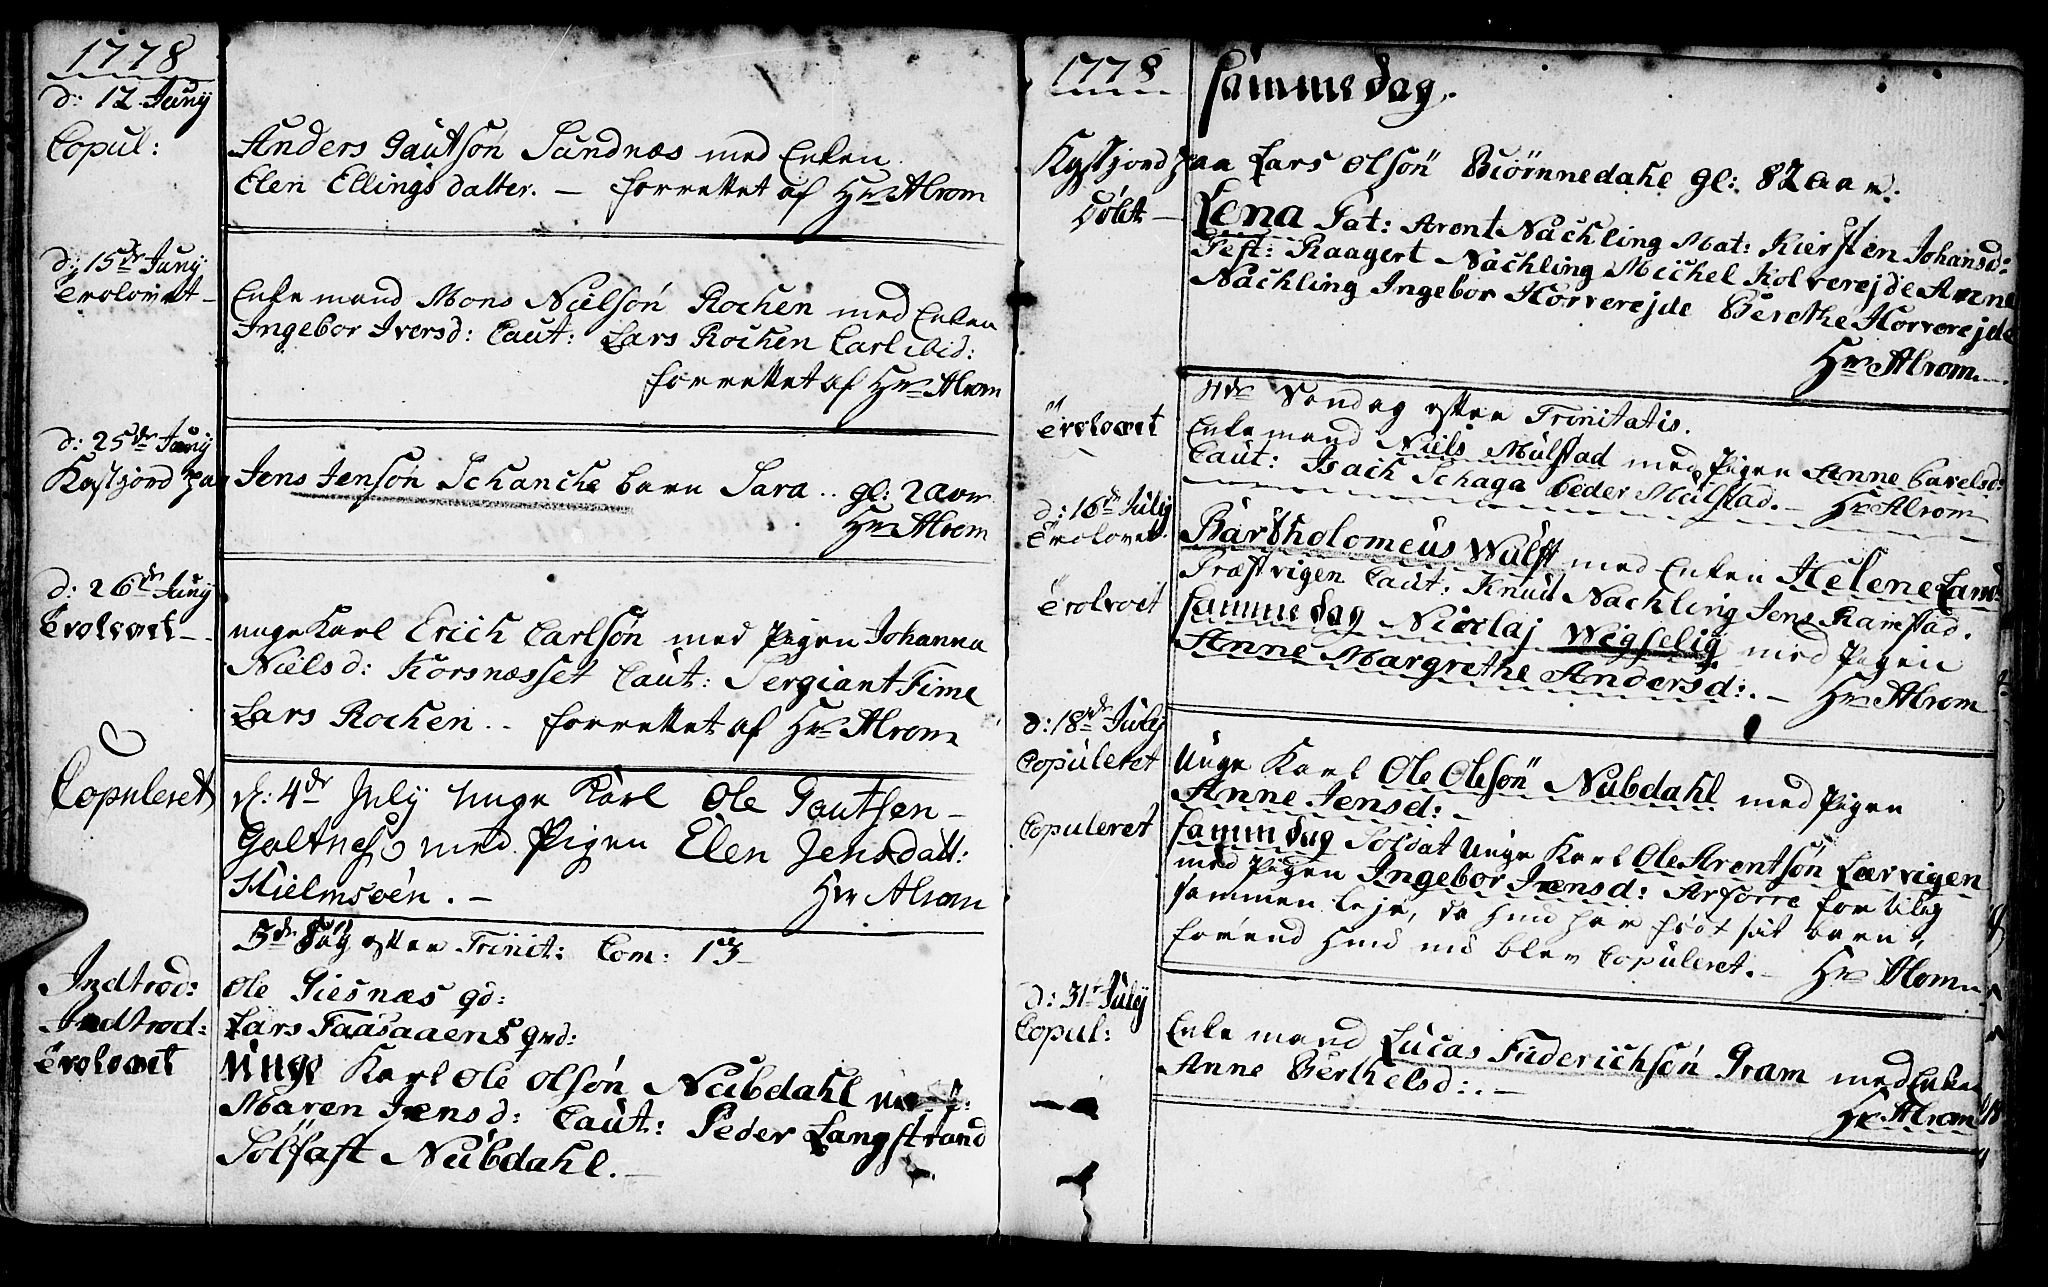 1778
d: 12 Juny
Copul:
Anders Gautsøn Sundnæs med Enken
Elen Ellings datter. — forrettet af Hr Alrom
d: 15de Juny
Trolovet —
Enke mand Mons Nielsøn Rochen med Enken
Ingebor Iversd: Caut: Lars Rochen Carl ibid:
forrettet af Hr Alrom
d: 25de Juny
Kastjord paa
Jens Jensøn Schancke barn Sara .. gl: 2 aar
Hr Alrom
d: 26de Juny
Trolovet —
unge Karl Erich Carlsøn med Pigen Johanna
Nielsd: Korsnæsset Caut: Sergiant Fime
Lars Rochen .. forrettet af Hr Alrom
Copuleret
d: 4de July unge Karl Ole Gautsen —
Galtness med Pigen Elen Jensdatt:
Hielmsøen . — Hr Alrom
5de Søn efter Trinit: Com: 13
Indtrod:
Ole Giesnæs qd:
Indtrod:
Lars Faasaaens qvd:
Trolovet
Unge Karl Ole Olsøn Nubdahl med P:
Maren Jensd: Caut: Peder Langstrand
Solfast Nubdahl. —
1778
samme dag.
Kystjord paa Lars Olsøn Biørnnedahl gl: 82 aar.
Døbt —
Lena Pat: Arent Nachling Mat: Kiersten Johansd:
Test: Raagert Nachling Michel Holverejde Anne
Nachling Ingebor Horverejde Berethe Horverejde
Hr Alrom.
4de Søndag efter Trinitatis.
Trolovet
Enke mand Niels Mulstad med Pigen Anne Pavelsd:
Caut: Isach Schaga Peder Mulstad. — Hr Alrom
d: 16de July
Trolovet
Bartholomeus Wulff med Enken Helene Land
Træstvigen Caut: Knud Nachling Jens Ramstad.
Trolovet
samme dag Nicolaj Wigselig med Pigen
Anne Margrethe Andersd: . — Hr Alrom
d: 18de July
Copuleret
Unge Karl Ole Olsøn Nubdahl med Pigen
Anne Jensd: —
Copuleret
samme dag Soldat Unge Karl Ole Arentsøn Lervigen
med Pigen Ingebor Jensd: for tilig
sammen leje, da hun har født sit barn,
førend hun nu blev Copuleret. — Hr Alrom
d: 31te July
Copul:
Enke mand Lucas Friderichsøn Gram med Enken
Anne Berthelsd: . —
Hr Alrom